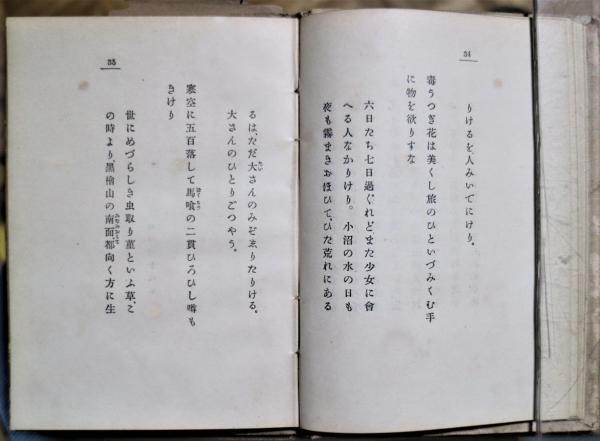 34
りけるを人みいでにけり。
毒うつぎ花は美くし旅のひといづみくむ手
に物を欲りすな
六日たち七日過ぐれどまた少女に會
へる人なかりけり。小沼の水の日も
夜も霧まきおほひて、ひた荒れにある
35
るは、たゞ大さんのみぞゑりたりける。
大さんのひとりごつやう。
寒空に五百落して馬喰の二貫ひろひし噂も
きけり
世にめづらしき虫取り菫といふ草、こ
の時より、黒檜山の南面都向く方に生